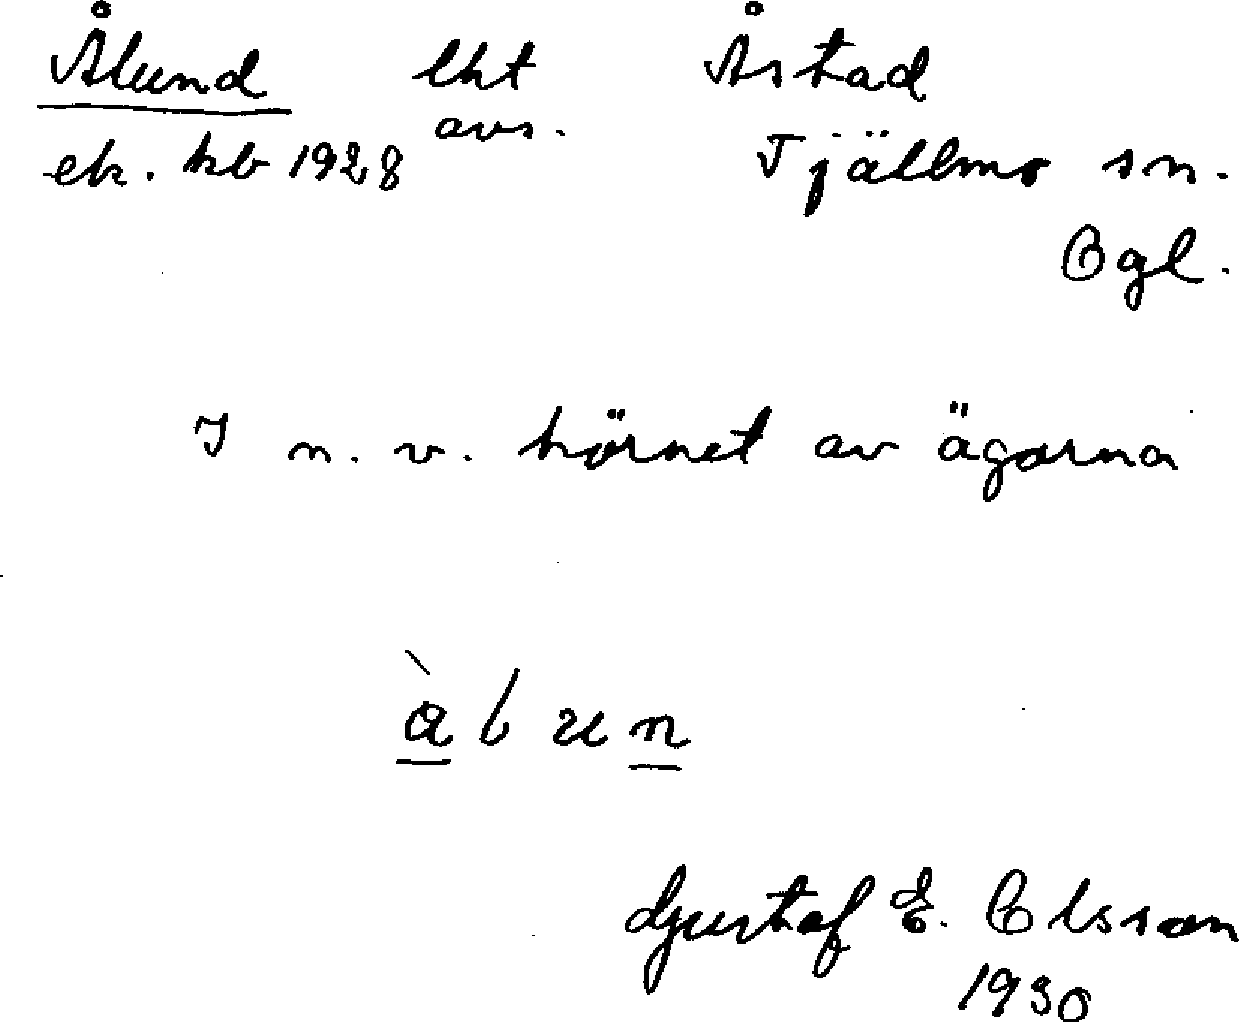 Ålund lht Åstad
avs.
ek. kb 1928 Tjällmo sn.
Ogl.
I n. v. hörnet av ägorna
Gustaf E. Olsson
1930